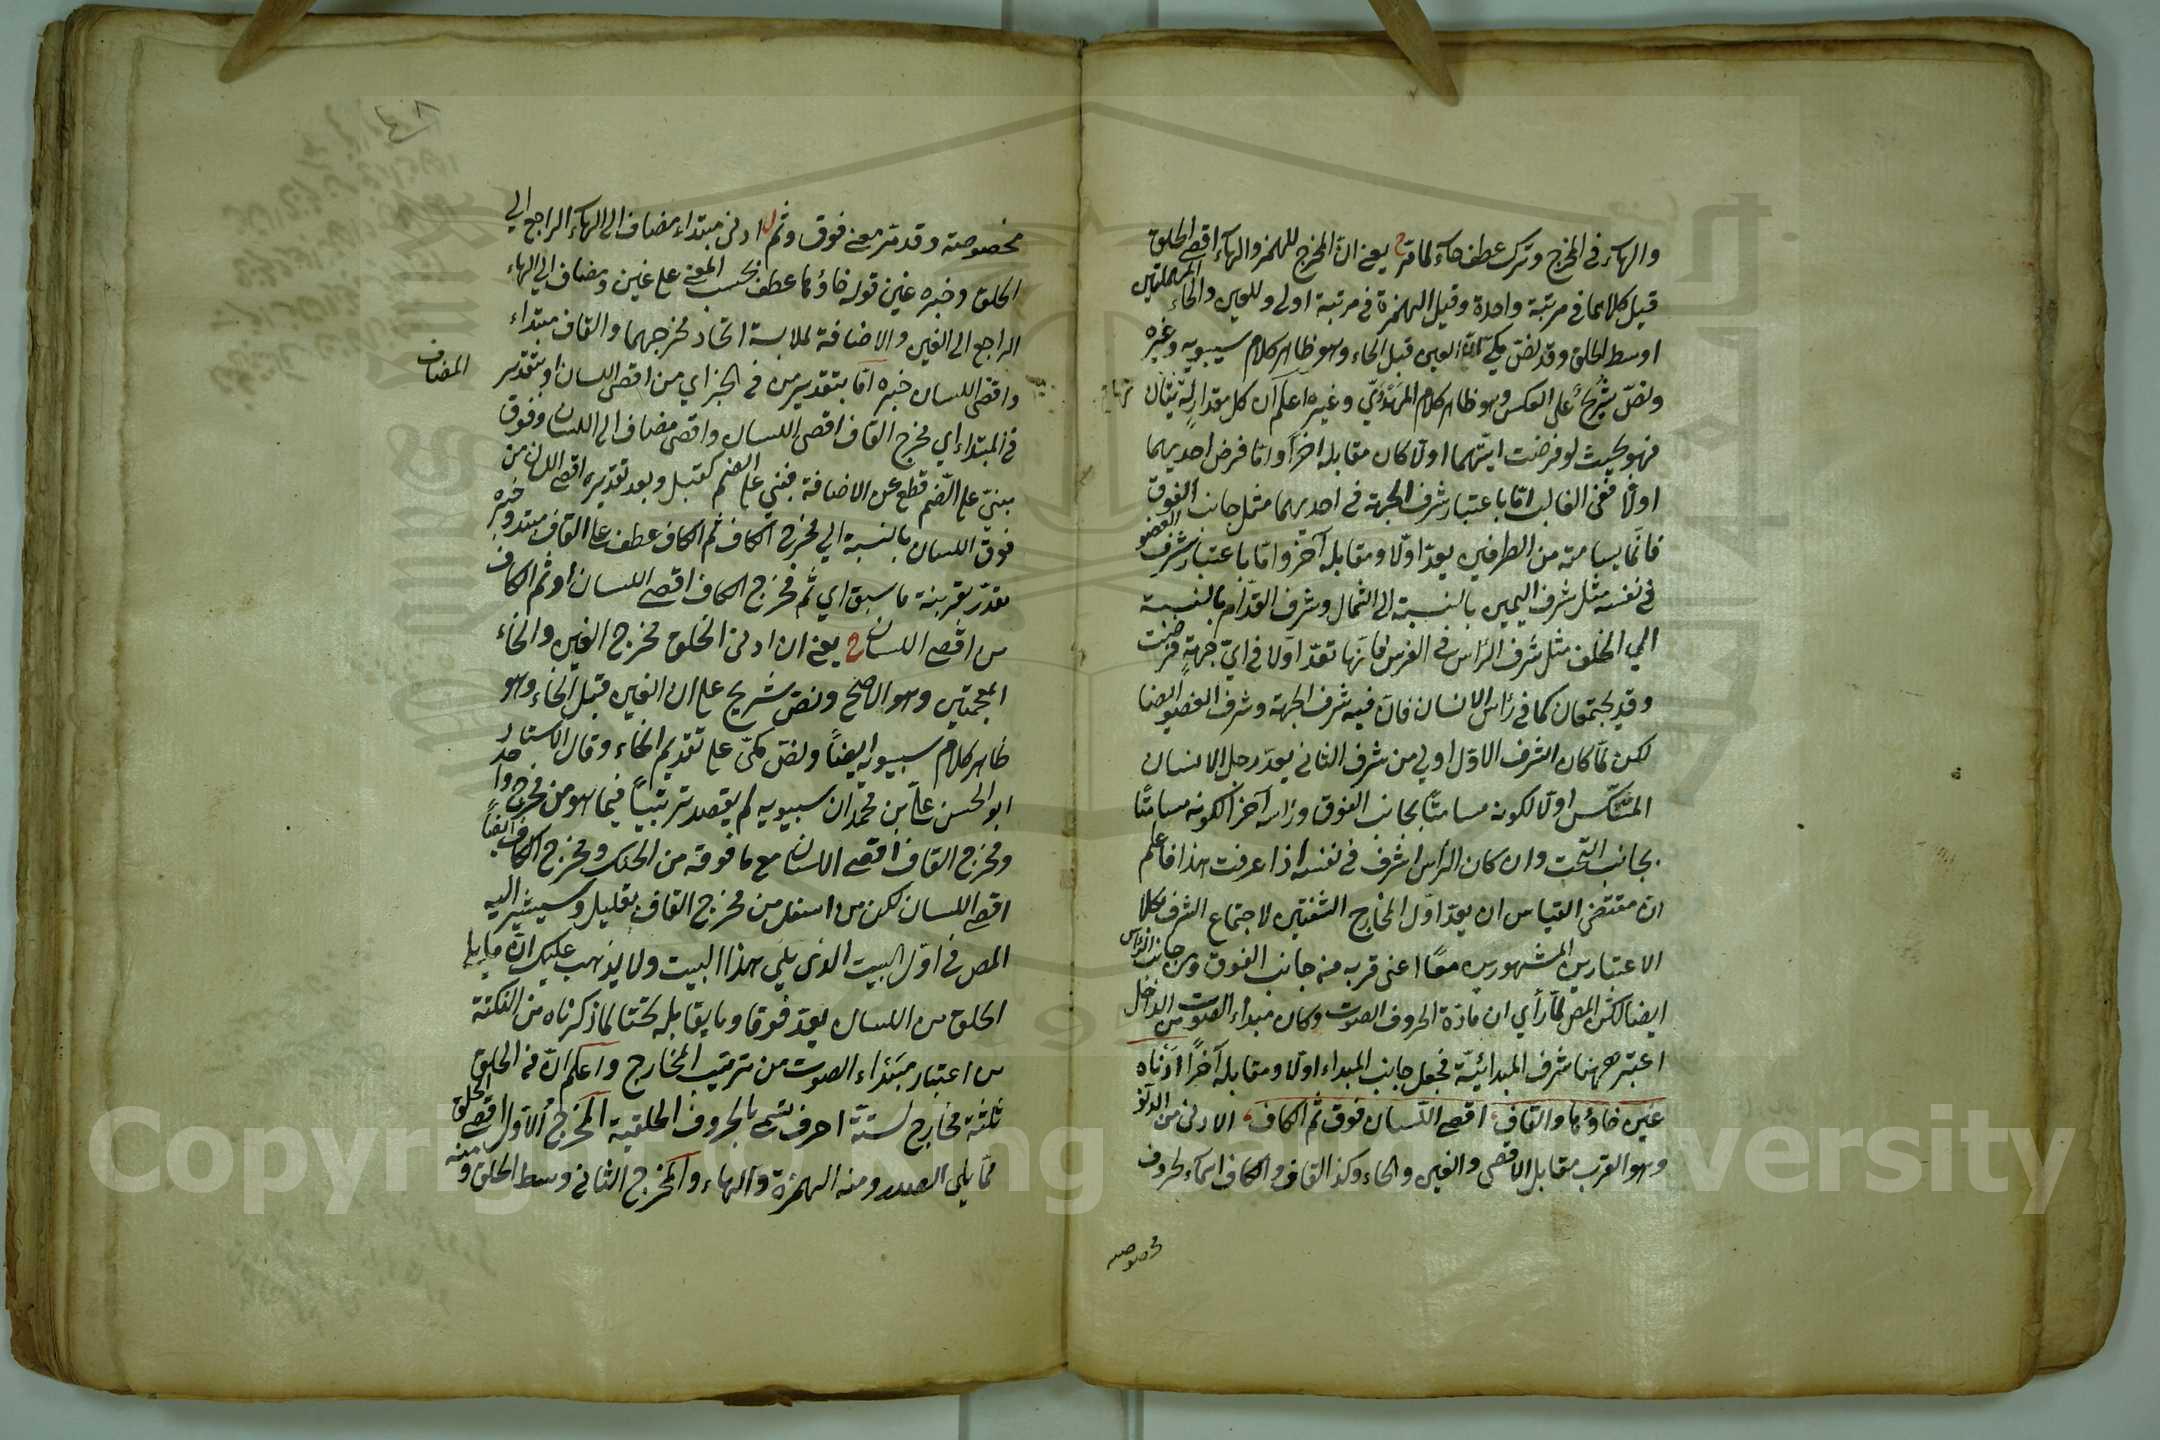 والهاء في المخرج وترك عطف حاء لما مر ح يعني ان المخرج للهمز والهاء اقصى الحلق
قيل كلاهما في مرتبة واحدة وقيل الهمزة في مرتبة اولى وللعين والحاء المهملتين
اوسط الحلق وقد نص مكي ان العين قبل الحاء وهو ظاهر كلام سيبويه وغيره
ونص شريح على العكس وهو ظاهر كلام المهدوي وغيره اعلم ان كل مقدار له نهايتان
فهو بحيث لو فرضت ايتهما اولا كان مقابله اخرا واما فرض احديهما
اولا ففي الغالب اما باعتبار شرف الجهة في احديهما مثل جانب الفوق
فان ما يسامته من الطرفين يعد اولا ومقابله آخر واما باعتبار شرف العضو
في نفسه مثل شرف اليمين بالنسبة الى الشمال وشرف القدام بالنسبة
الي الخلف مثل شرف الرأس في الفرس فانها تعد اولا في اي جهة فرضت
وقد يجتمعان كما في رأس الانسان فان فيه شرف الجهة وشرف العضو ايضا
لكن لما كان الشرف الاول اولي من شرف الثاني يعد رجل الانسان
المنتكس اولا لكونه مسامتا بجانب الفوق ورأسه آخرا لكونه مسامتا
بجانب التحت وان كان الرأس اشرف في نفسه اذا عرفت هذا فاعلم
ان مقتضى القياس ان يعد اول المخارج الشفتين لاجتماع الشرف بكلا
الاعتبارين المشهورين معا اعني قربه منه جانب الفوق ومن جانب الرأس
ايضا لكن المص لما رأي ان مادة الحروف الصوت وكان مبداء الصوت من الداخل
اعتبر ههنا شرف المبدائية فجعل جانب المبداء اولا ومقابله آخرا ادناه
غين خاؤها والقاف اقصى اللسان فوق ثم الكاف الادنى من الدنو
وهو القرب مقابل الاقصى والغين والخاء وكذا القاف والكاف اسماء لحروف
مخصوصه
مخصوصة وقد مر معنى فوق وثم ادنى مبتداء مضاف الى الهاء الراجع الي
الحلق وخبره غين قوله خاؤها عطف بحسب المعنى على غين ومضاف الي الهاء
الراجع الى الغين والاضافة لملابسة اتحاد مخرجهما والقاف مبتداء
واقصى اللسان خبره اما بتقدير من في الخبر اي من اقصى اللسان او بتقدير
المضاف
في المبتداء اي مخرج القاف اقصى اللسان واقصى مضاف الى اللسان وفوق
مبني على الضم قطع عن الاضافة فبني على الضم كقبل وبعد تقديره اقصى اللسان من
فوق اللسان بالنسبة الي مخرج الكاف ثم الكاف عطف على القاف مبتدا وخبره
مقدر بقرينة ما سبق اي ثم مخرج الكاف اقصى اللسان او ثم الكاف
من اقصى اللسان ح يعني ان ادنى الحلق مخرج الغين والخاء
المعجمتين وهو الاصح ونص شريح على ان الغين قبل الخاء وهو
ظاهر كلام سيبويه ايضا ونص مكي على تقديم الخاء وقال الاستاد
ابو الحسن علي بن محمد ان سيبويه لم يقصد ترتيبا فيما هو من مخرج واحد
ومخرج القاف اقصى اللسان مع ما فوقه من الحنك ومخرج الكاف ايضا
اقصى اللسان لكن من اسفل من مخرج القاف بقليل وسيشير اليه
المص في اول البيت الذي يلي هذا البيت ولا يذهب عليك ان ما يلي
الحلق من اللسان يعد فوقا وما يقابله تحتا لما ذكرناه من النكتة
من اعتبار مبتداء الصوت من ترتيب المخارج واعلم ان في الحلق
ثلثة مخارج لستة احرف تسمى بالحروف الحلقية المخرج الاول اقصى الحلق
مما يلي الصدر ومنه الهمزة والهاء والمخرج الثاني وسط الحلق ومنه